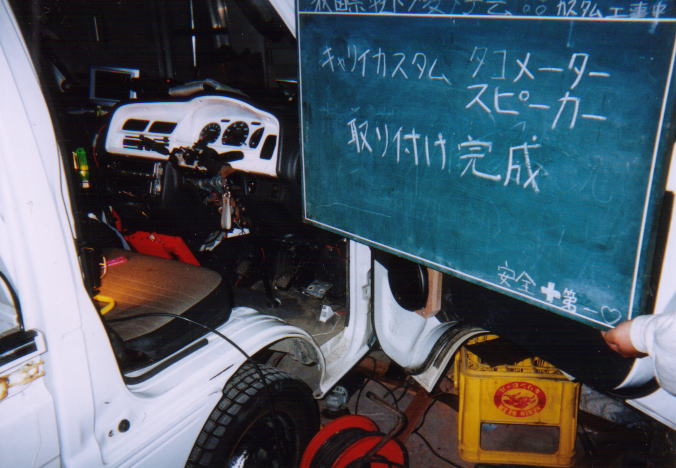 カスタム工事中
キャリイカスタム タコメーター
スピーカー
取り付け完成
安全✚第一♡